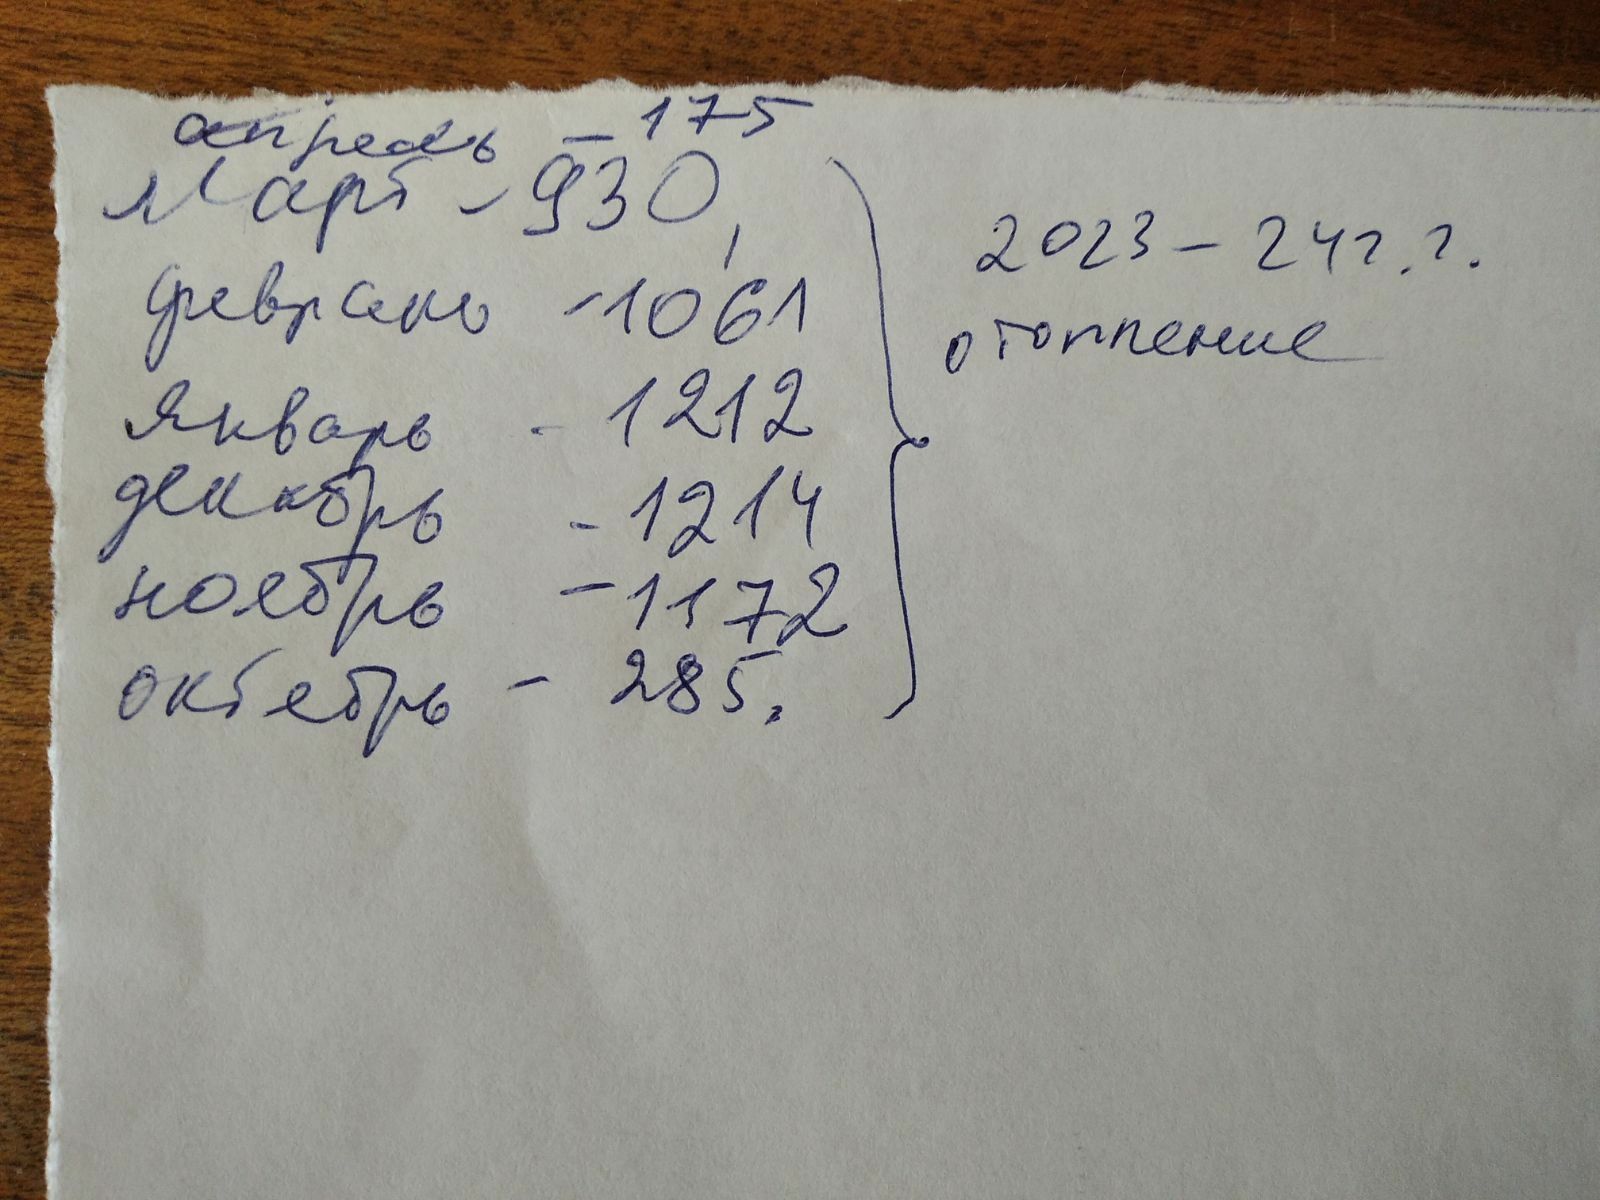 апрель - 175
Март - 930,
февраль - 1061
Январь - 1212
декабрь - 1214
ноябрь - 1172
октябрь - 285.
2023 - 24 г.г.
отопление